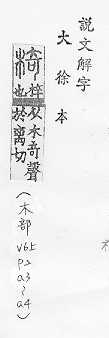 說文解字
大徐本
椅梓也从木奇聲
於離切
（木部 v6上 p2 a3~a4）